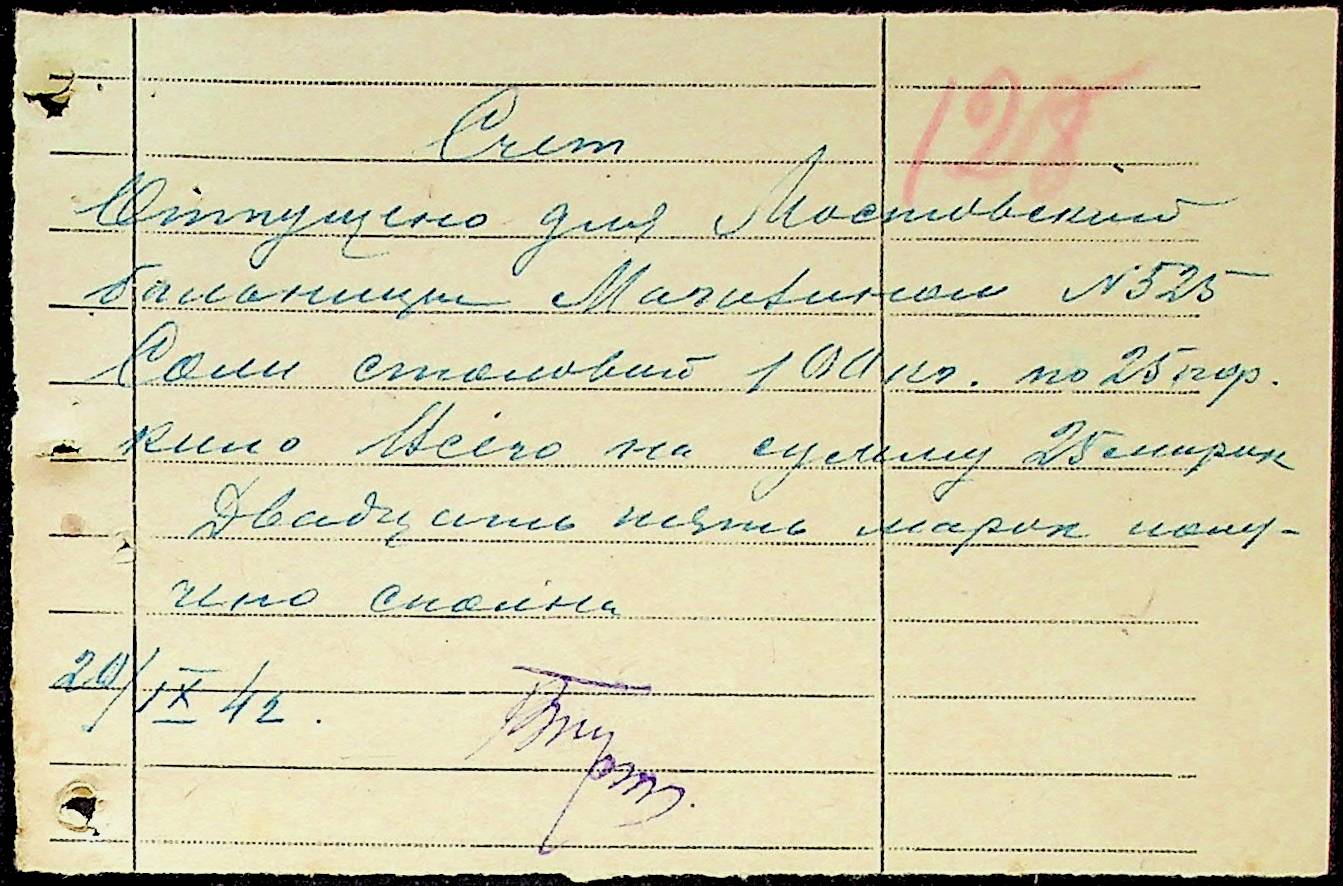 128
Счет
Отпущено для Мостовский
больницы Магазином №525
Соли столовий 100 кг. по 25 пф.
кило Всего на сумму 25 марок
Двадцать пять марок полу-
чено сполна
20/IX 42.